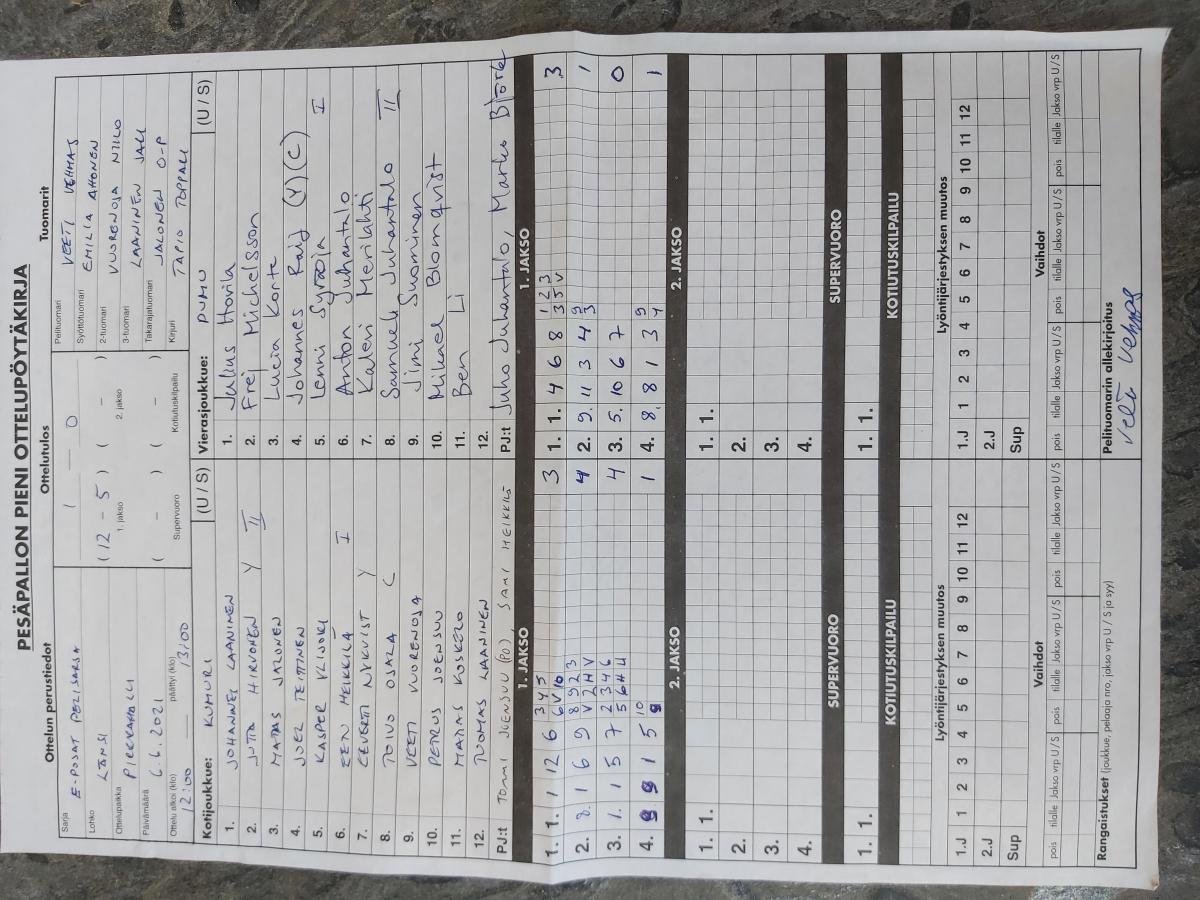 PESÄPALLON PIENI OTTELUPÖYTÄKIRJA
Ottelun perustiedot
Sarja
E-POJAT PERUSSARJA
Lohko
LÄNSI
Ottelupaikka
PIRKKAHALLI
Päivämäärä
6.6.2021
Ottelu alkoi (klo) päättyi (klo)
12:00 13:00
Ottelutulos
1 — 0
( 12 - 5 ) ( - )
1. jakso 2. jakso
( - ) ( - )
Supervuoro Kotiutuskilpailu
Tuomarit
Pelituomari VEETI VEHMAS
Syöttötuomari EMILIA AHONEN
2-tuomari VUORENOJA NIILO
3-tuomari LAANINEN JALI
Takarajatuomari JALONEN O-P
Kirjuri TAPIO TOPPARI
Kotijoukkue: KUMURI (U / S)
1. JOHANNES LAANINEN
2. JUTTA HIRVONEN Y II
3. MATIAS JALONEN
4. JOEL TEITTINEN
5. KASPER YLIJOKI
6. EENU HEIKKILÄ I
7. EEVERTI NYKVIST Y
8. TOIVO OJALA C
9. VEETI VUORENOJA
10. PETRUS JOENSUU
11. MATIAS KOSKELO
12. TUOMAS LAANINEN
PJ:t TOMMI JOENSUU (PJ), SAMI HEIKKILÄ
Vierasjoukkue: PUMU (U / S)
1. Julius Hovila
2. Frej Michelsson
3. Lucia Korte
4. Johannes Raij (Y) (C)
5. Lenni Syrjäoja I
6. Anton Juhantalo
7. Kalevi Merilahti
8. Samueli Juhantalo II
9. Jimi Suominen
10. Mikael Blomqvist
11. Ben Li
12.
PJ:t Juho Juhantalo, Marko Björk
1. JAKSO
1. 1. 1 12 6 3 4 5 6 V 10 3
2. 8. 1 6 9 8 9 2 3 V 2 H V 4
3. 1. 1 5 7 2 3 4 6 5 6 H H 4
4. 9 9 1 5 10 9 1
1. JAKSO
1. 1. 4 6 8 1 2 3 3 5 V 3
2. 9. 11 3 4 9 3 1
3. 5. 10 6 7 0
4. 8. 8 1 3 9 4 1
2. JAKSO
1. 1.
2.
3.
4.
2. JAKSO
1. 1.
2.
3.
4.
SUPERVUORO
1. 1.
SUPERVUORO
1. 1.
KOTIUTUSKILPAILU
KOTIUTUSKILPAILU
Lyöntijärjestyksen muutos
1.J 1 2 3 4 5 6 7 8 9 10 11 12
2.J
Sup
Lyöntijärjestyksen muutos
1.J 1 2 3 4 5 6 7 8 9 10 11 12
2.J
Sup
Vaihdot
pois tilalle Jakso vrp U / S pois tilalle Jakso vrp U / S pois tilalle Jakso vrp U / S
Vaihdot
pois tilalle Jakso vrp U / S pois tilalle Jakso vrp U / S pois tilalle Jakso vrp U / S
Rangaistukset (joukkue, pelaaja nro, jakso vrp U / S ja syy)
Pelituomarin allekirjoitus
Veeti Vehmas